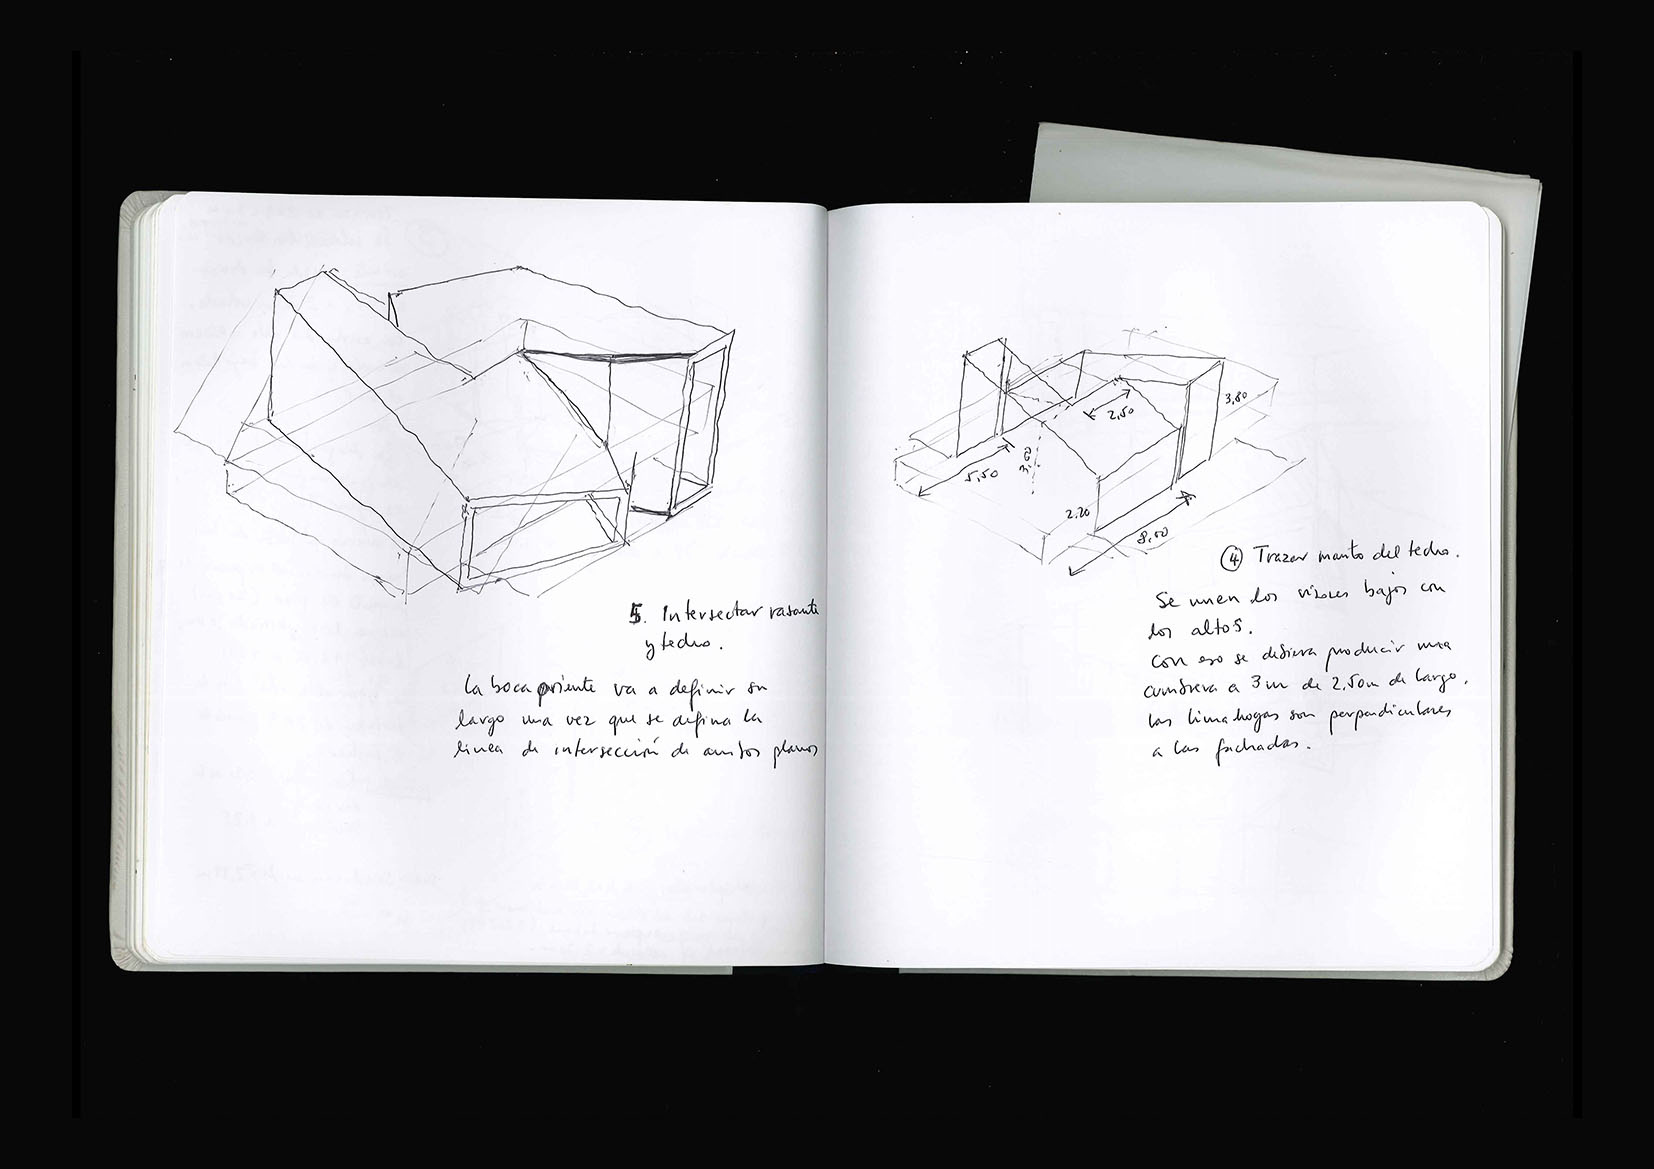 5. Intersectar rasante
y techo.
la boca oriente va a definir su
largo una vez que se defina la
linea de intersección de ambos planos
3,80
2,50
5,50
2.20
8,00
④ Trazar manto del techo.
Se unen los vértices bajos con
los altos.
Con eso se debiera producir una
cumbrera a 3m de 2,50m de largo.
las limahoyas son perpendiculares
a las fachadas.